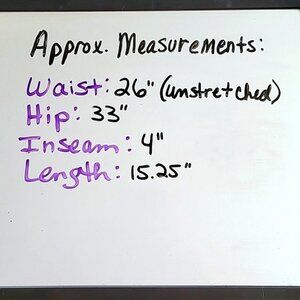 Approx. Measurements:
Waist: 26" (unstretched)
Hip: 33"
Inseam: 4"
Length: 15.25"